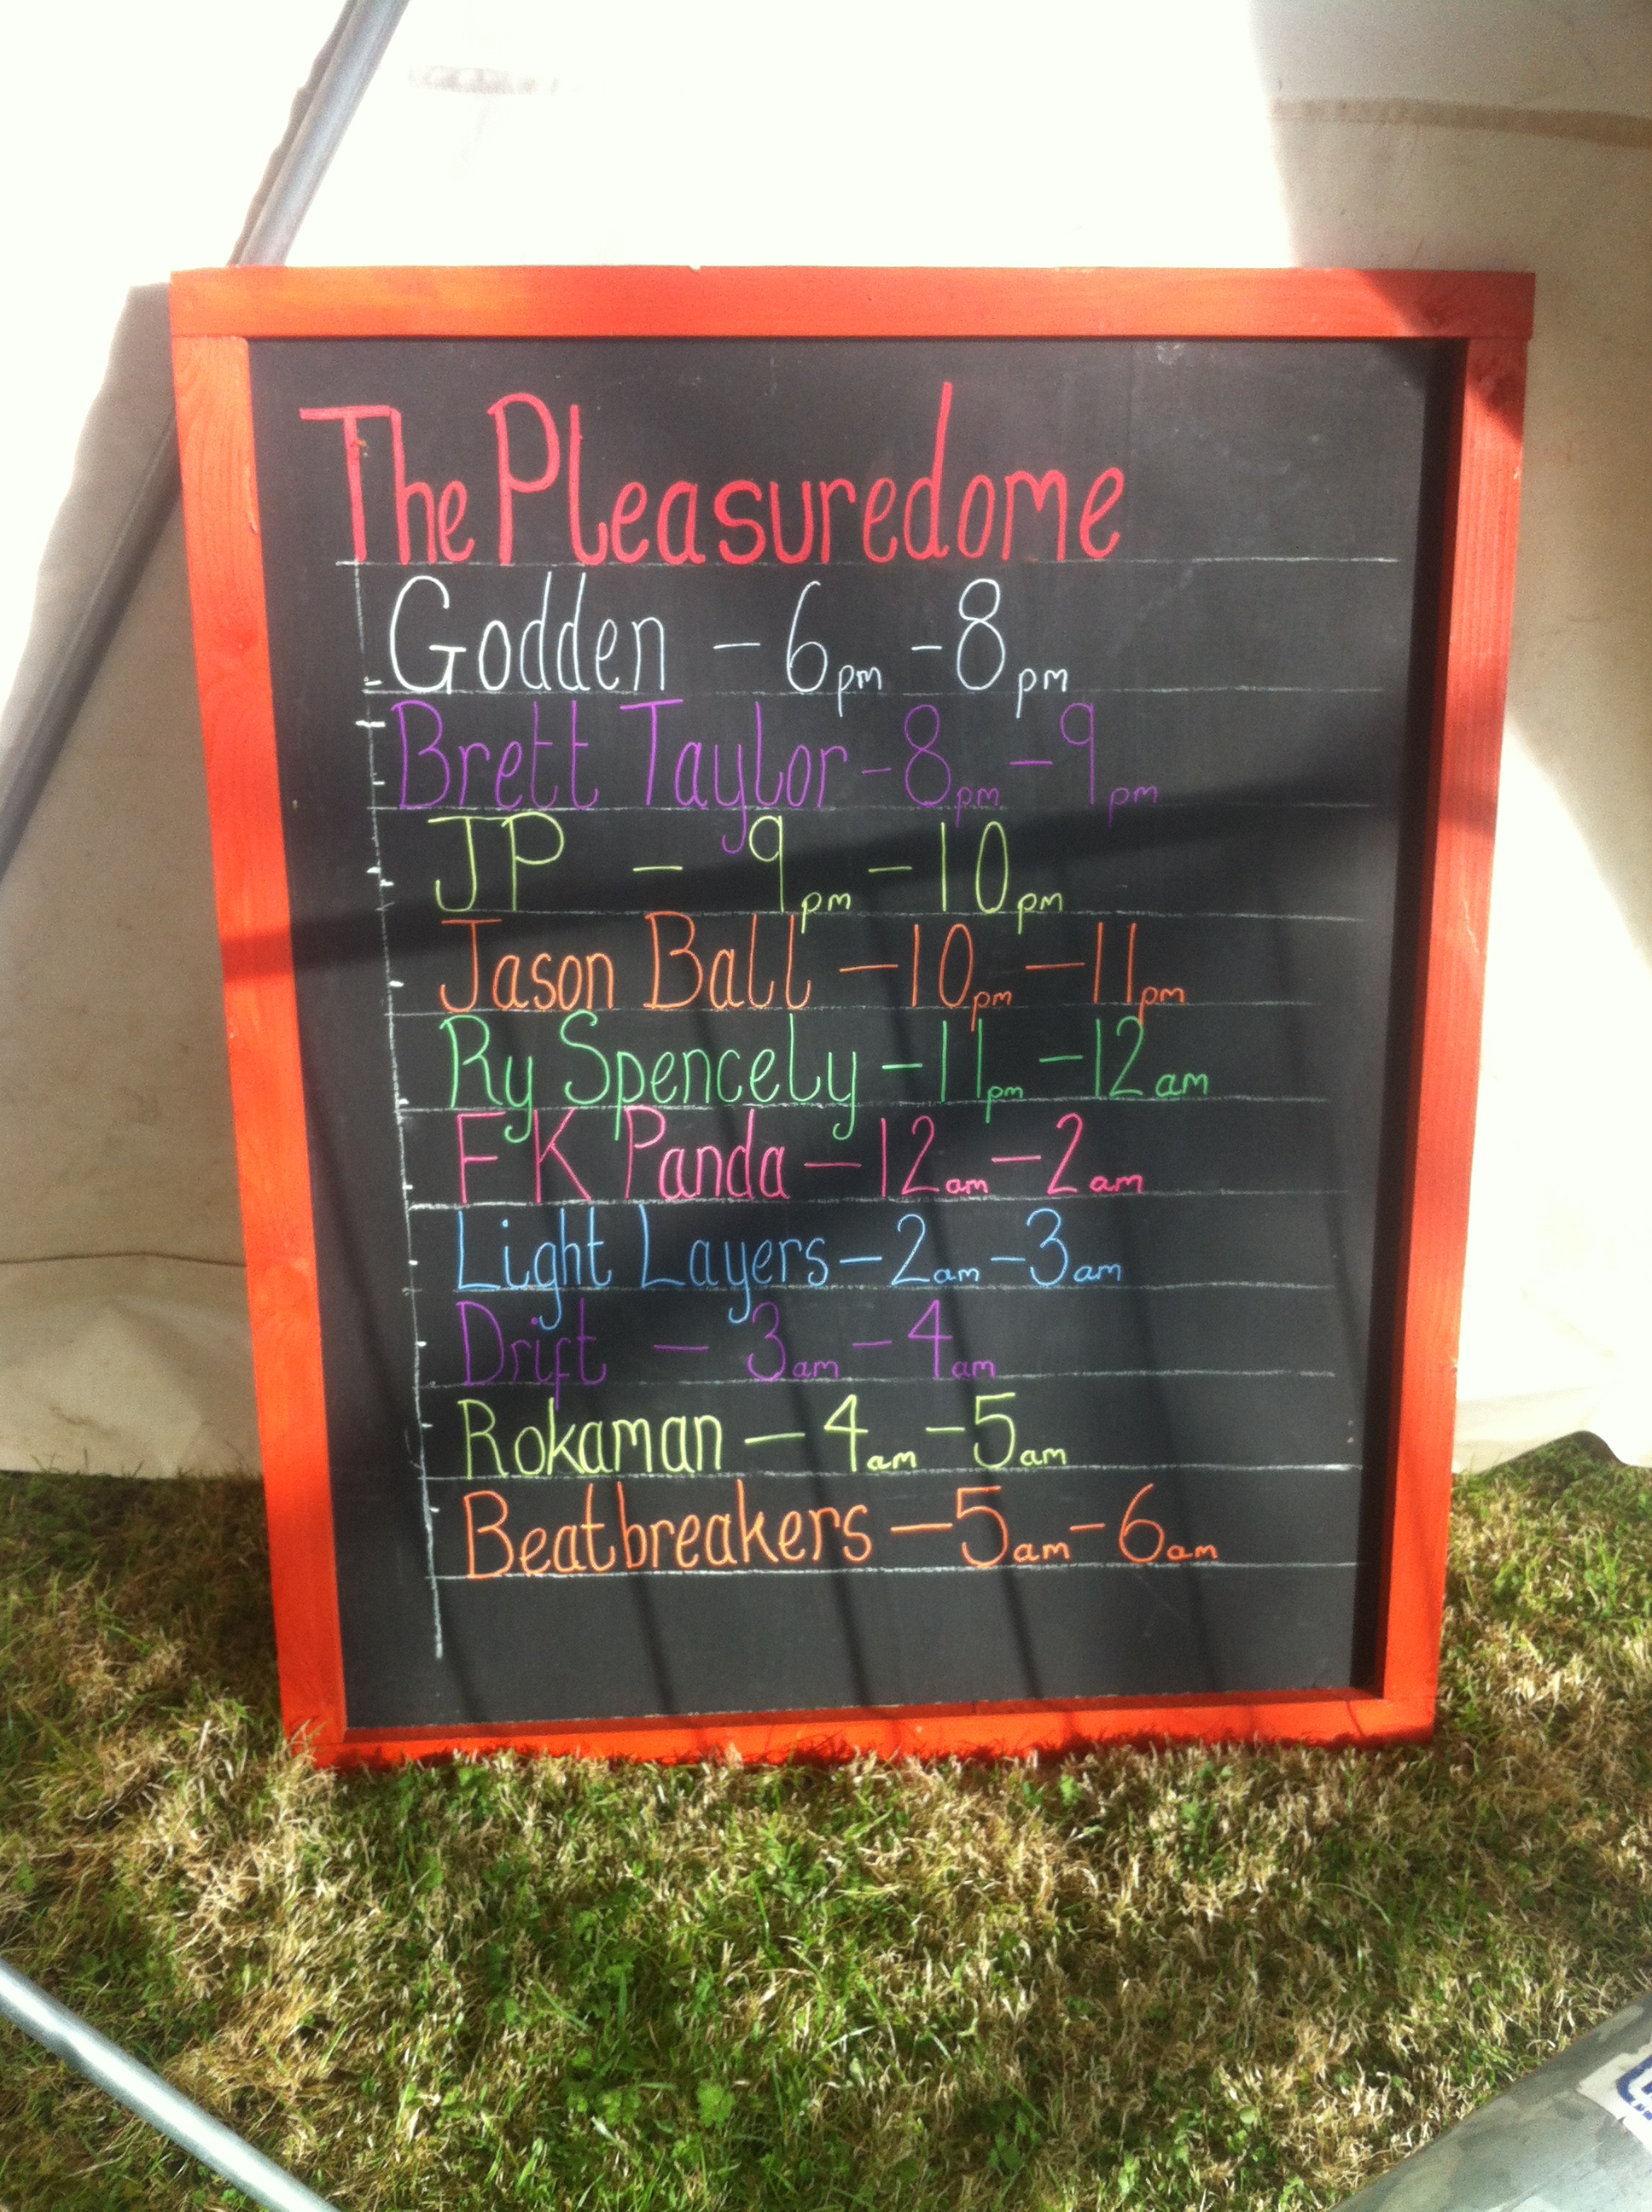 The Pleasuredome
Godden - 6pm - 8pm
Brett Taylor - 8pm - 9pm
JP - 9pm - 10pm
Jason Ball - 10pm - 11pm
Ry Spencely - 11pm - 12am
FK Panda - 12am - 2am
Light Layers - 2am - 3am
Drift - 3am - 4am
Rokaman - 4am - 5am
Beatbreakers - 5am - 6am